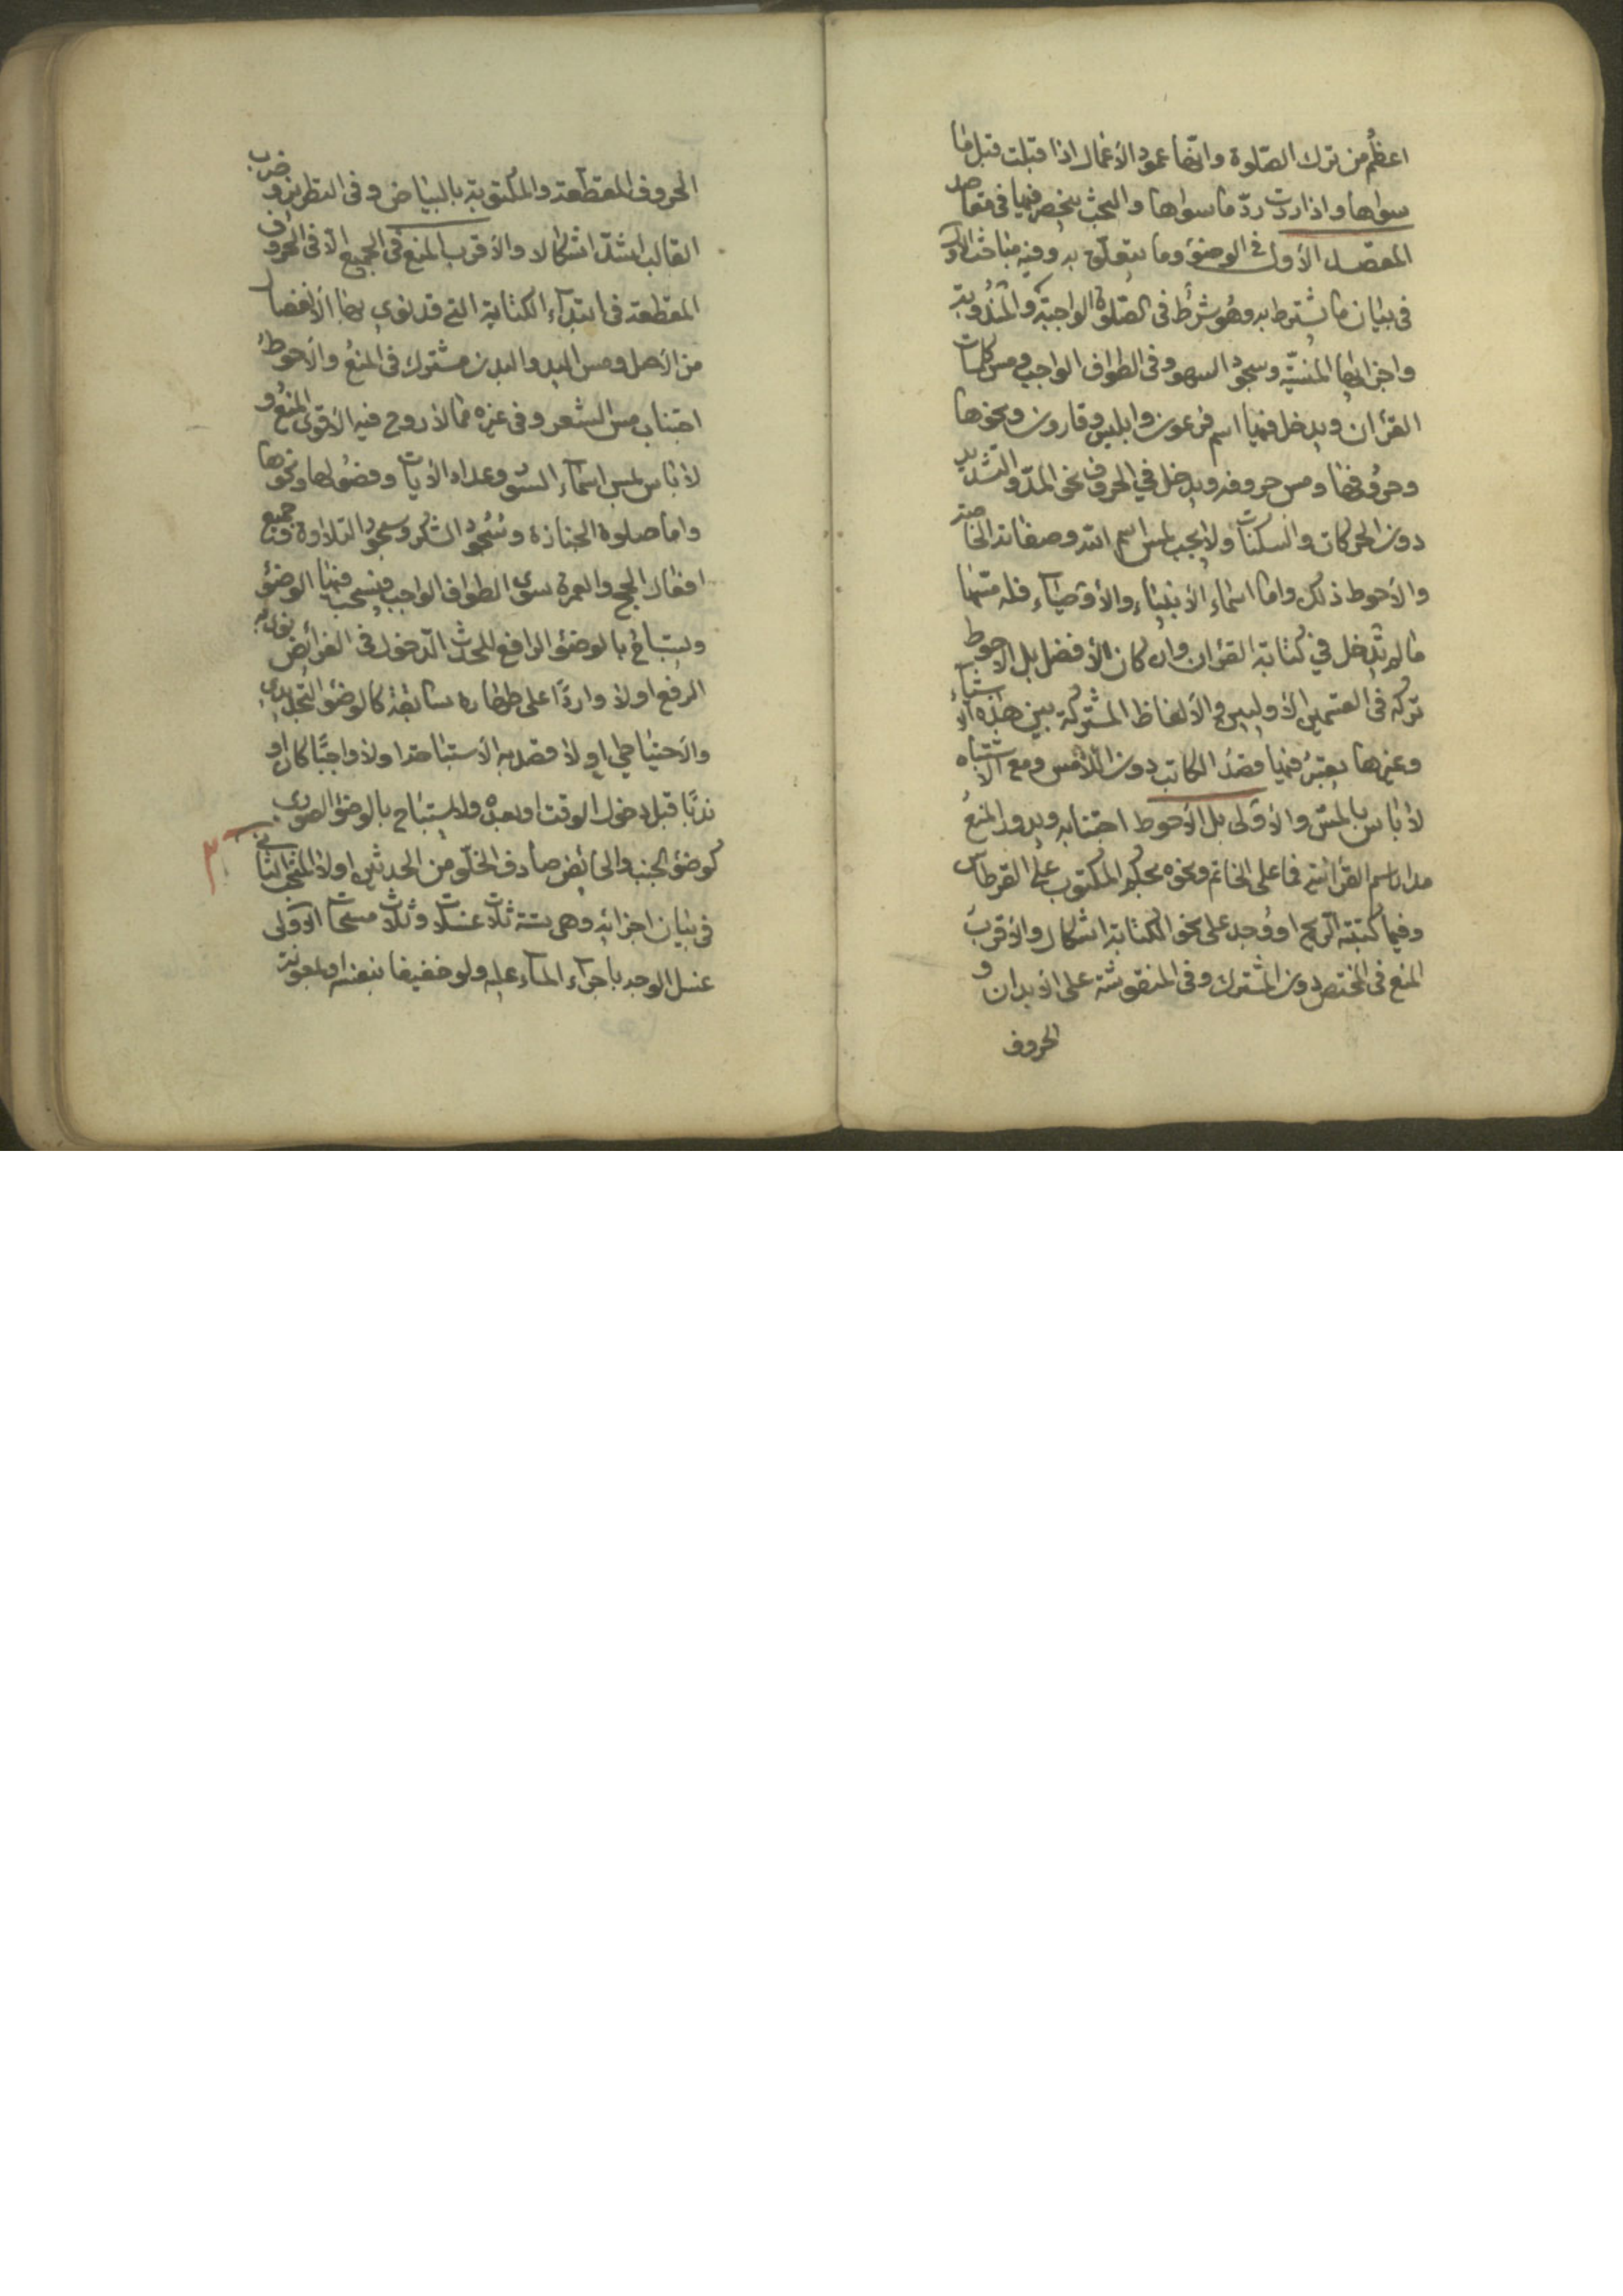 اعظم من ترك الصّلوة وانّها عمود الأعمال اذا قبلت قبل ما
سواها واذا ردّت ردّ ما سواها والبحث ينحصر فيها في مقاصد
المقصد الأول في الوضوء وما يتعلّق به وفيه مباحث الأول
في بيان ما يشترط به وهو شرط في الصّلوة الواجبة والمندوبة
واجزائها المنسيّة وسجود السهو وفي الطواف الواجب ومس كلمات
القرأن ويدخل فيها اسم فرعون وابليس وقارون ونحوها
وحروفها ومس حروفه ويدخل في الحروف نحو المدّ والتشديد
دون الحركات والسكنات ولا يجب لمس اسم الله وصفاته الخاصة
والأحوط ذلك واما اسماء الأنبياء والأوصياء فله مسّها
ما لم تدخل في كتابة القرأن وان كان الأفضل بل الأحوط
تركه في القسمين الأوليين والألفاظ المشتركة بين هذه الأشياء
وغيرها يعتبر فيها قصد الكاتب دون اللّامس ومع الاشتباه
لا بأس بالمسّ والأولى بل الأحوط اجتنابه ويدور المنع
مدار اسم القرأنية فما على الخاتم ونحوه بحكم المكتوب على القرطاس
وفيما كتبته الريح او وجد على نحو الكتابة اشكال والأقرب
المنع في المختص دون المشترك وفي المنقوشة على الأبدان و
الحروف
الحروف المقطّعة والمكتوبة بالبياض وفي التطريز وضرب
القالب اشدّ اشكالا والأقرب المنع في الجميع الّا في الحروف
المقطعة في ابتداء الكتابة التي قد نوي بها الأنفصال
من الأصل ومس اليد والبدن مشترك في المنع والأحوط
اجتناب مس الشعر وفي غيره ممّا لا روح فيه الأقوى المنع و
لا بأس بمس اسماء السّور وعداد الأيات وفضولها ونحوها
واما صلوة الجنازة وسجود الشكر وسجود التلاوة وجميع
افعال الحج والعمرة سوى الطواف الواجب فيستحب فيها الوضوء
ويستباح بالوضوء الرافع للحدث الدّخول في الفرائض نوى به
الرفع او لا واردًا على طهارة سابقة كالوضوء التجديدي
والأحتياطي او لا قصد به الأستباحة او لا واجبًا كان او
ندبًا قبل دخول الوقت او بعده ولا يستباح بالوضوء الصوري
كوضوء الجنب والحائض صادف الخلّو من الحدثين او لا المبحث الثاني
في بيان اجزائه وهي ستة ثلاث غسلات وثلاث مسحات الأولى
غسل الوجه باجراء الماء عليه ولو خفيفا بنفسه او بمعونة